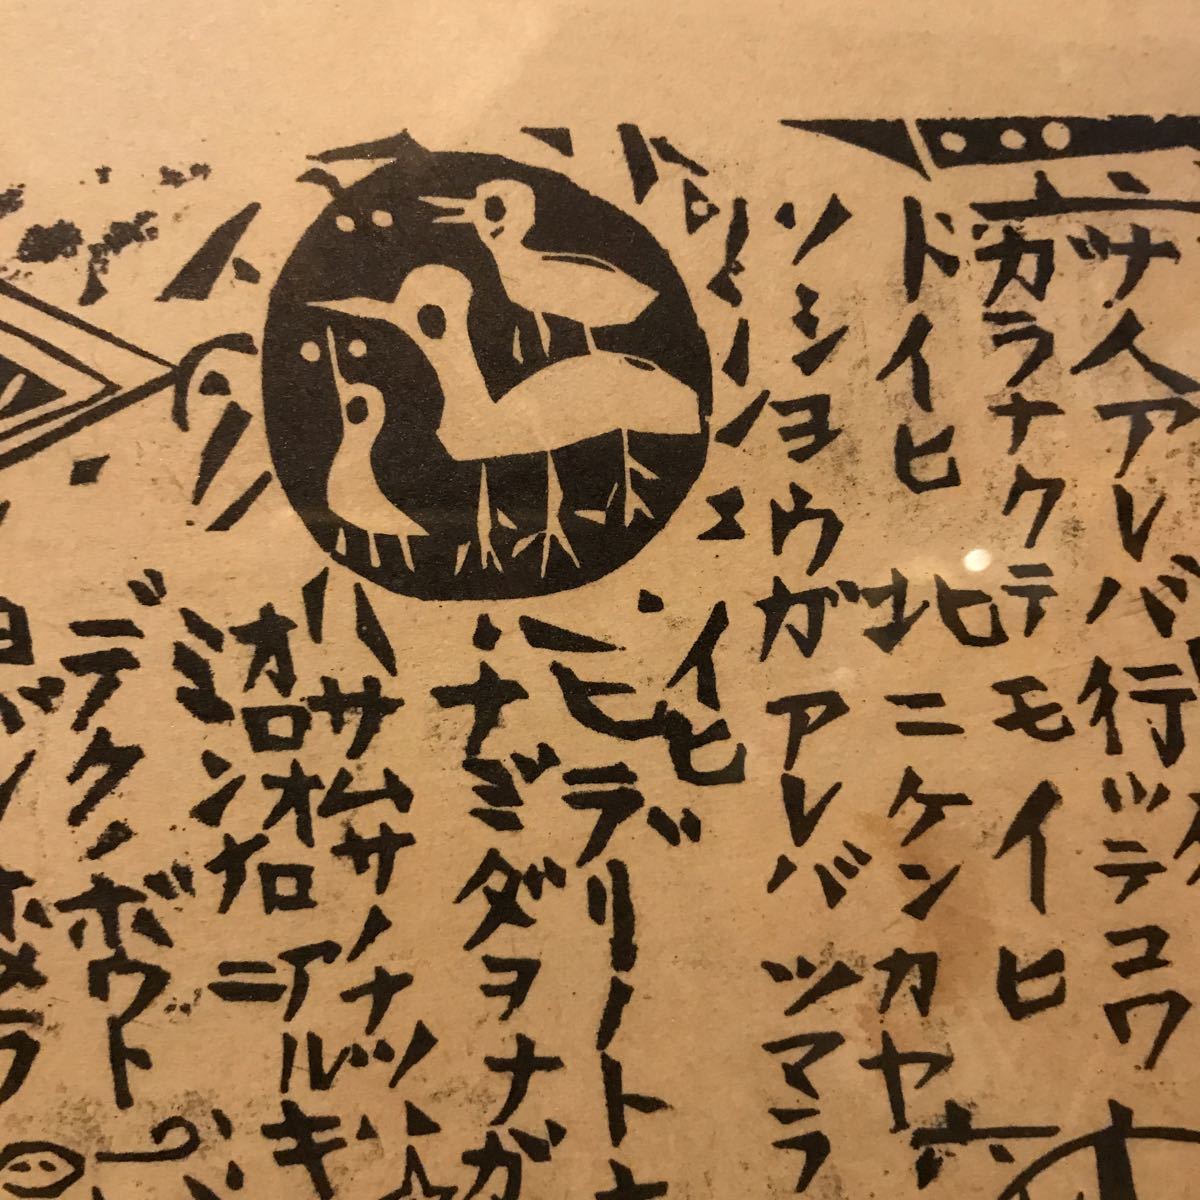 サイアレバ行ッテコワ
ガラナクテモイヒ
ドイヒ
北ニケンカヤ
ソシヨウガアレバツマラ
イヒ
ヒデリノト
ナミダヲナガ
サムサノナツ
オロオロアルキ
ミンナニ
デクノボウト